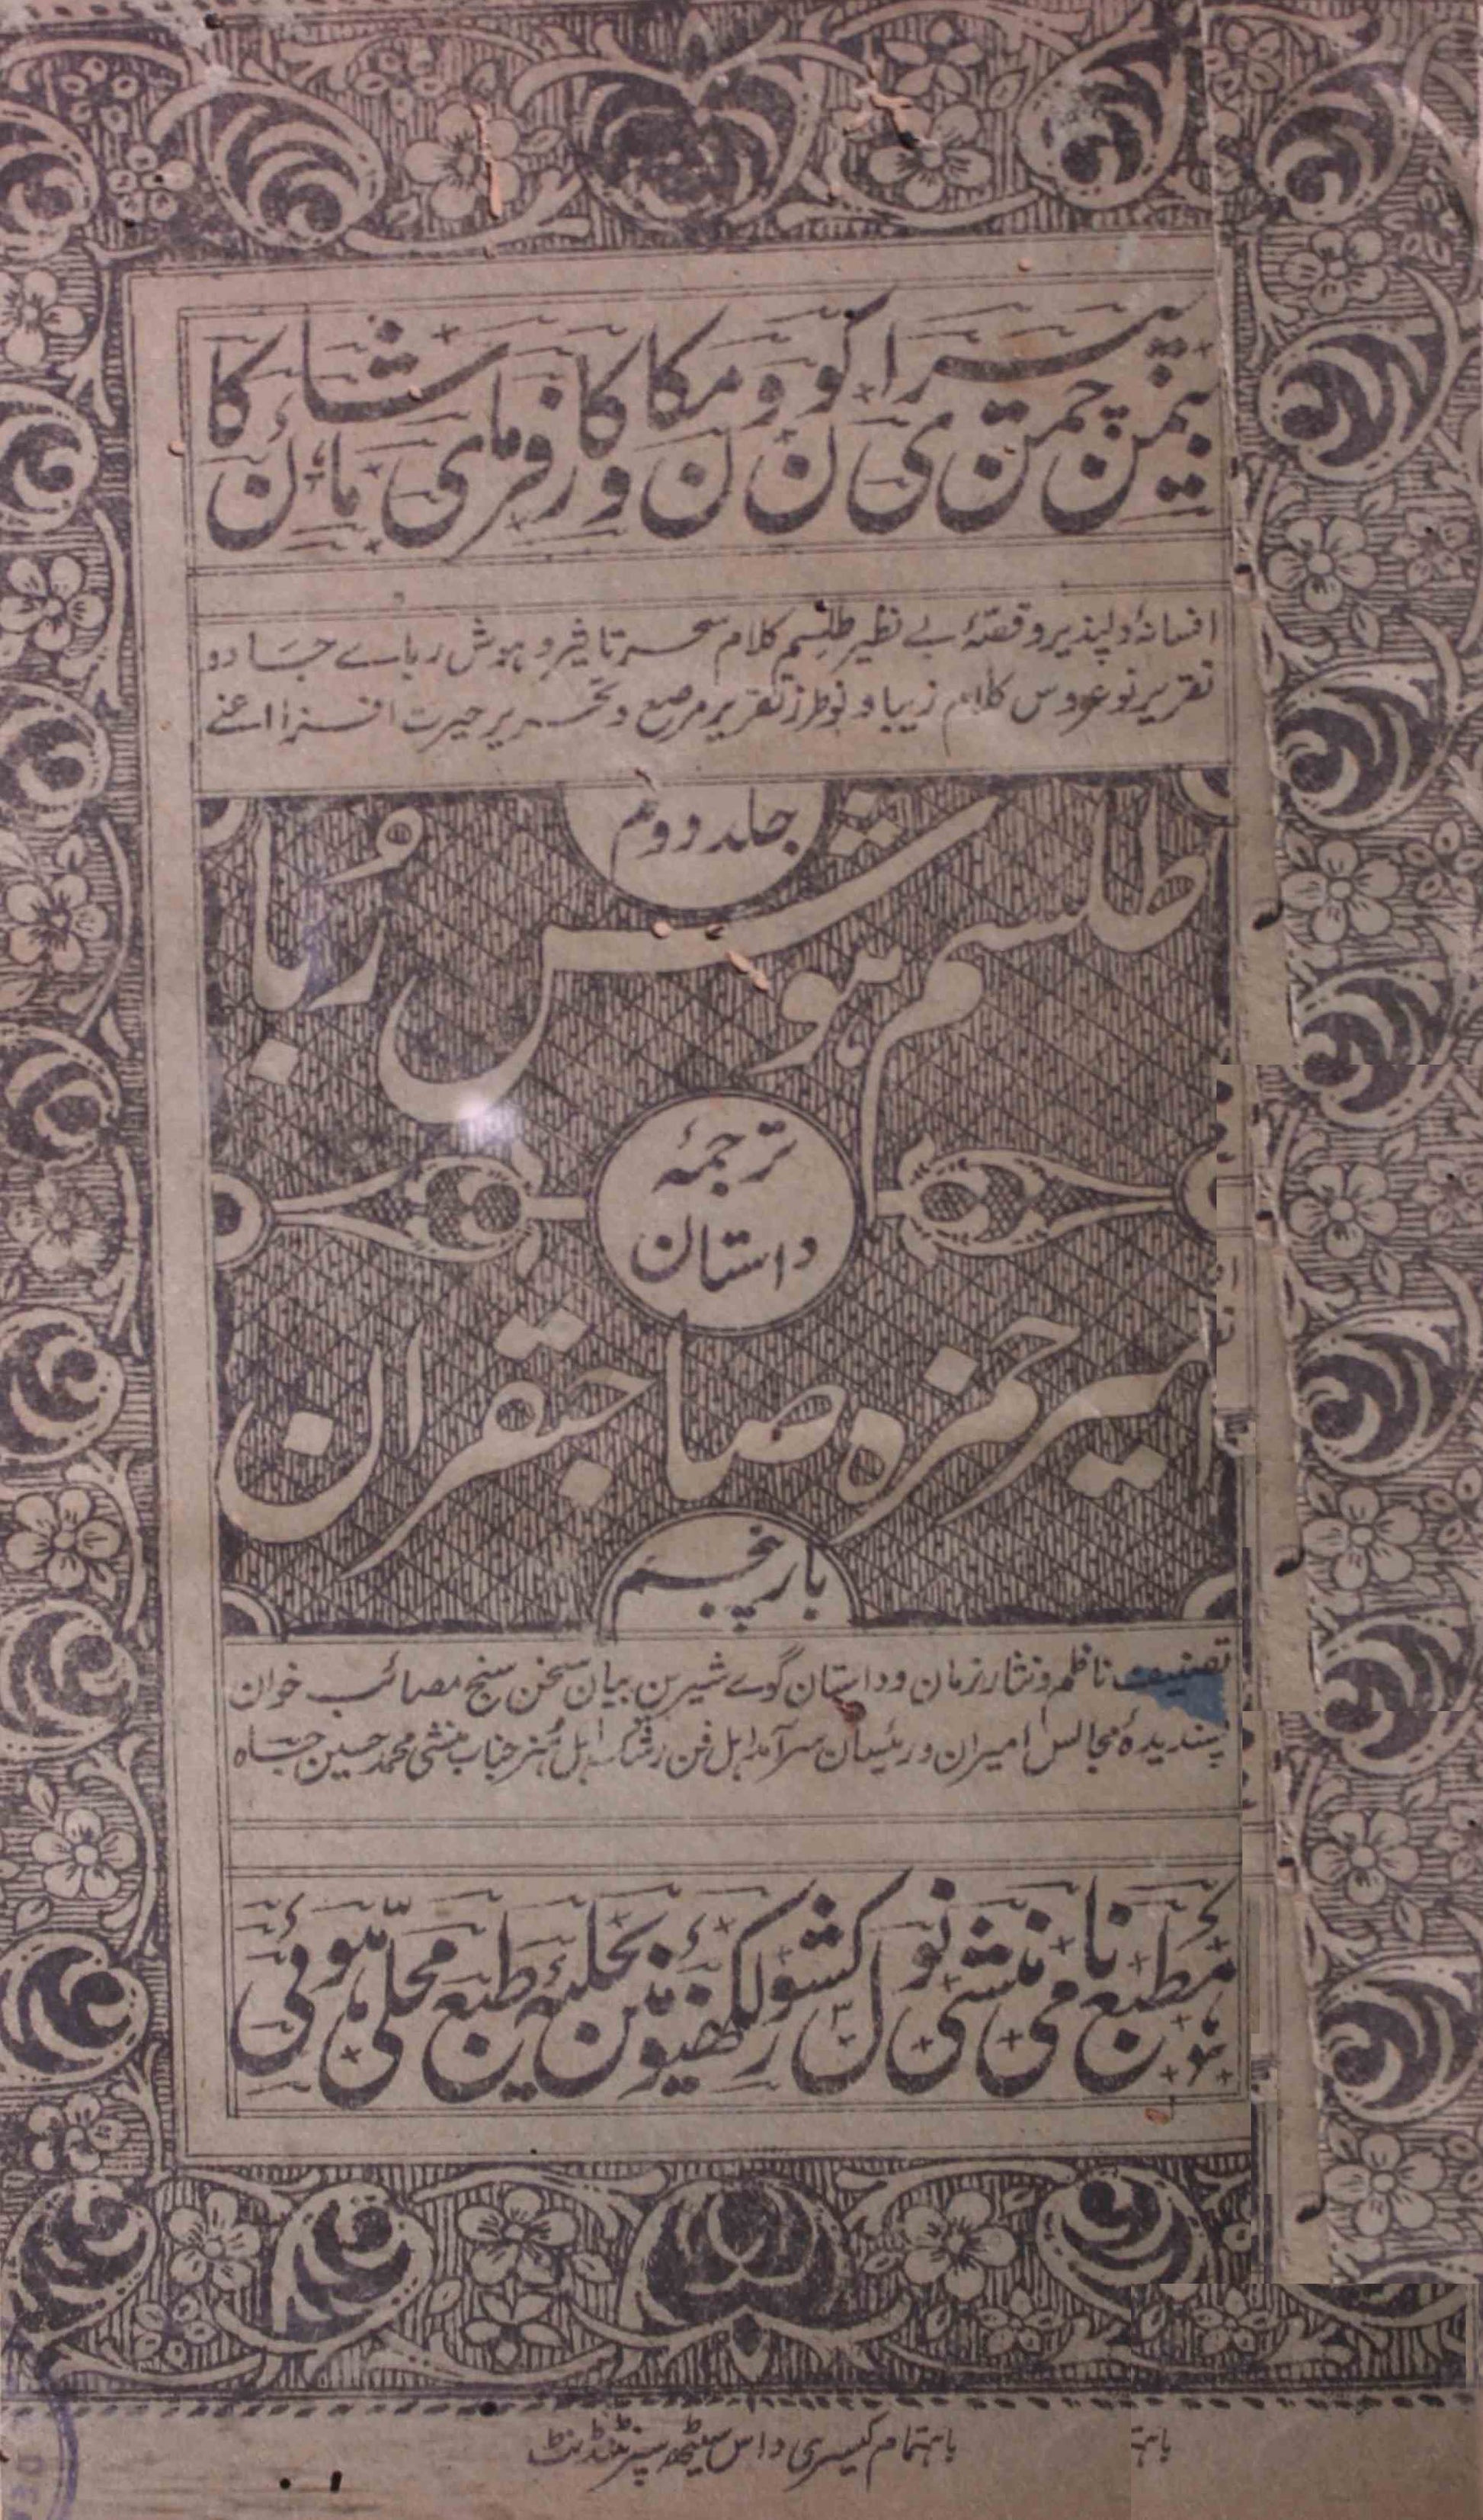 بیمن چمن پیرای کون و مکان و کارفرمای شان کا
افسانۂ دلپذیر و قصۂ بے نظیر طلسم کلام سحر تاثیر و ہوش ربائے جادو
تقریر نو عروس کلام زیبا و نوطرز تقریر مرصع و تحریر حیرت افزا اعنے
جلد دوم
طلسم ہوش رُبا
ترجمۂ
داستان
امیر حمزہ صاحبقران
بار پنجم
تصنیف ناظم و نثار زمان و داستان گوے شیرین بیان سخن سنج مصائب خوان
پسندیدۂ مجالس امیران و رئیسان سرآمد اہل فن رشک اہل ہنر جناب منشی محمد حسین جاہ
مطبع نامی منشی نولکشور لکھنؤ مین بحلیۂ طبع محلی ہوئی
باہتمام کیسری داس سیٹھ سپرنٹنڈنٹ
باہتـ